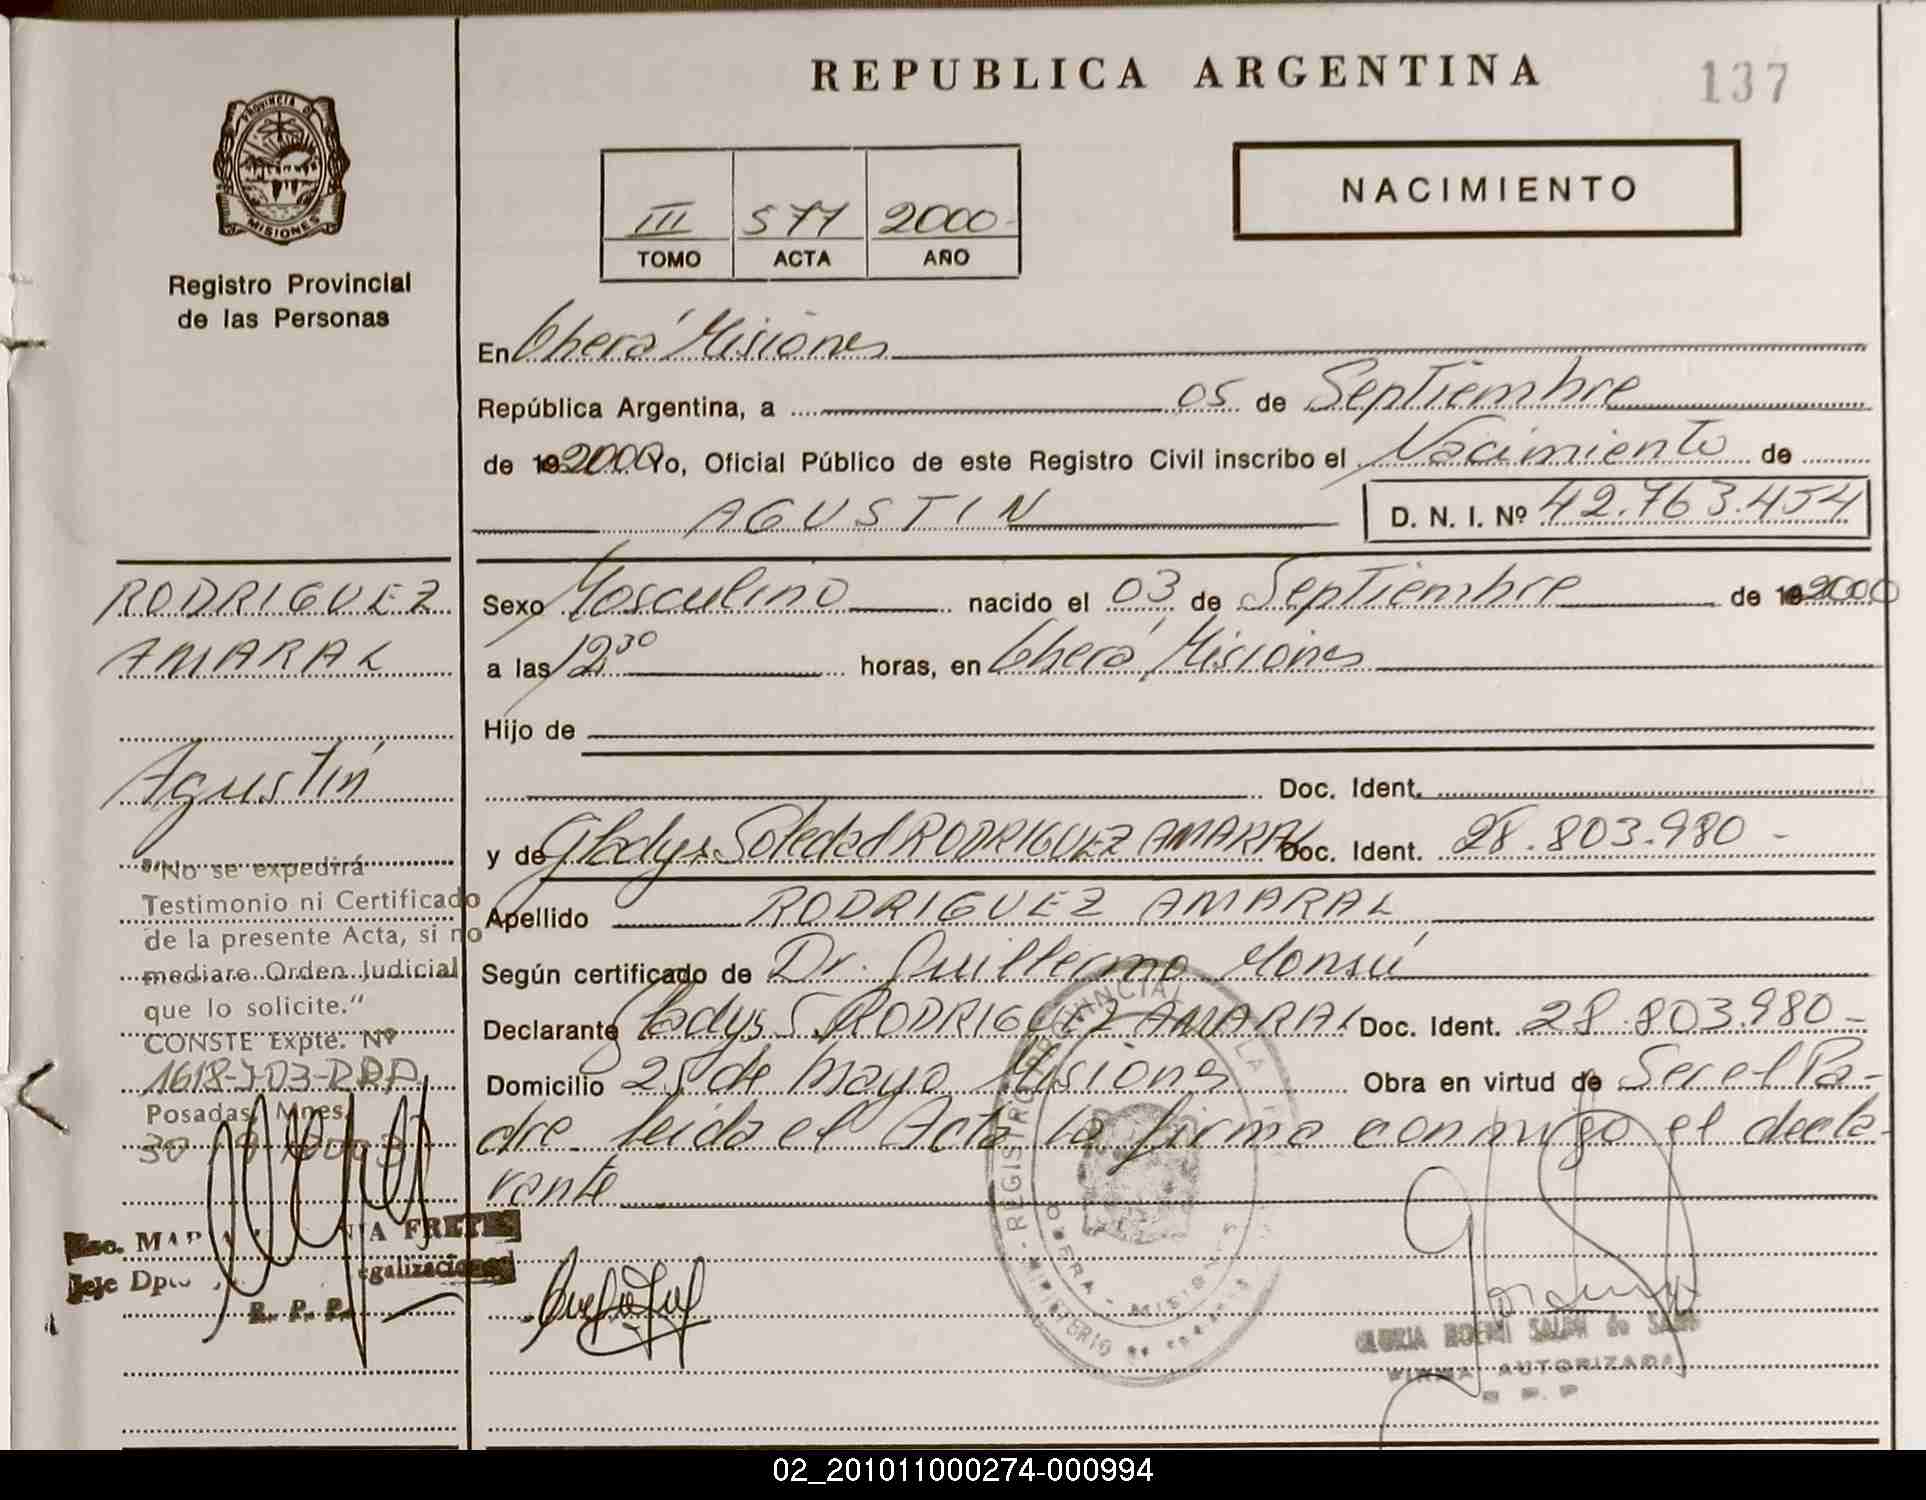 REPUBLICA ARGENTINA
137
PROVINCIA DE
MISIONES
Registro Provincial
de las Personas
III 577 2000
TOMO ACTA AÑO
NACIMIENTO
En Oberá Misiones
República Argentina, a 05 de Septiembre
de 19 2000 Yo, Oficial Público de este Registro Civil inscribo el Nacimiento de
AGUSTIN D. N. I. Nº 42.763.454
Sexo Masculino nacido el 03 de Septiembre de 19 2000
a las 12 30 horas, en Oberá Misiones
Hijo de
Doc. Ident.
y de Gladys Soledad RODRIGUEZ AMARAL Doc. Ident. 28.803.980 -
Apellido RODRIGUEZ AMARAL
Según certificado de Dr. Guillermo Monsú
Declarante Gladys S. RODRIGUEZ AMARAL Doc. Ident. 28.803.980 -
Domicilio 25 de Mayo Misiones Obra en virtud de Ser el Pa-
dre leída el Acta la firma conmigo el decla-
rante
RODRIGUEZ
AMARAL
Agustín
"No se expedirá
Testimonio ni Certificado
de la presente Acta, si no
mediare Orden Judicial
que lo solicite."
CONSTE Expte. Nº
Posadas, Mnes.
30
Esc. FRETES
Jefe Dpto
R. P. P.
REGISTRO PROVINCIAL
OBERA - MISIONES
MINISTERIO DE
GLORIA NOEMI
FIRMA AUTORIZADA
R. P. P.
02_201011000274-000994